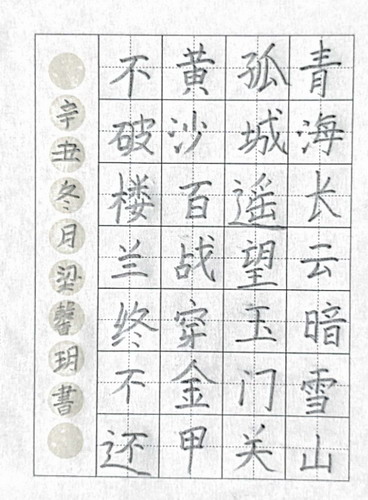 青海长云暗雪山
孤城遥望玉门关
黄沙百战穿金甲
不破楼兰终不还
辛丑冬月梁馨玥書